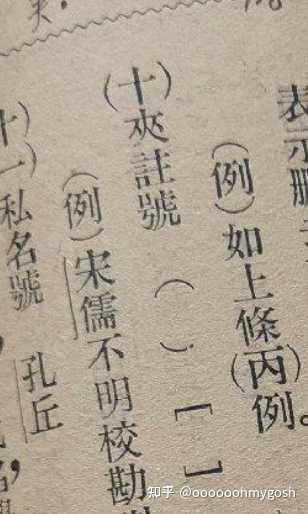 表示刪
(例)如上條(丙)例。
(十)夾註號 ( ) [ ]
(例)宋儒不明校勘
(十一)私名號 孔丘
知乎 @oooooohmygosh